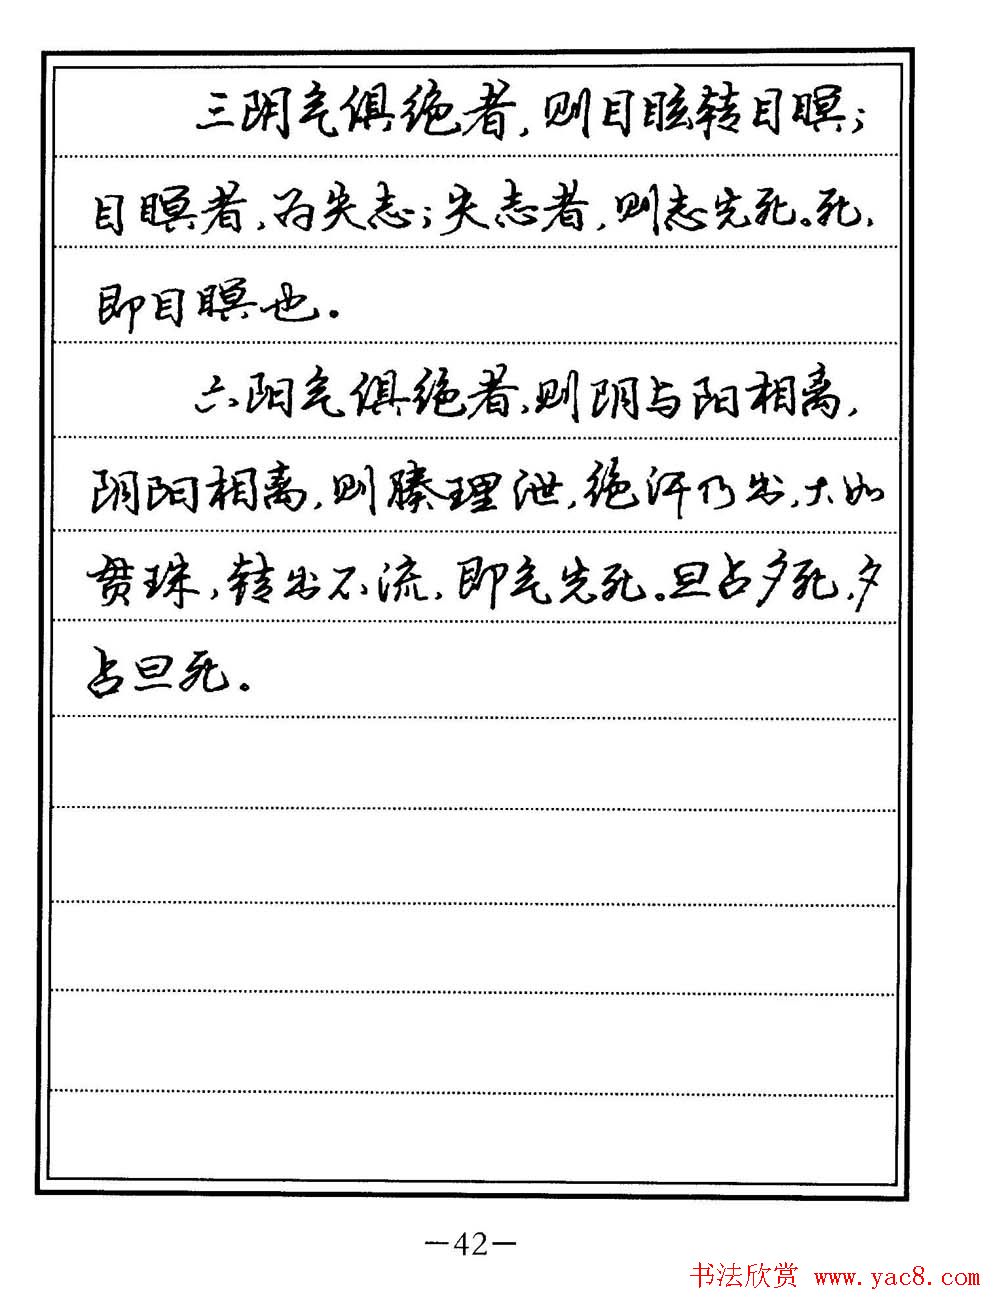 三阴气俱绝者,则目眩转目瞑;
目瞑者,为失志;失志者,则志先死。死,
即目瞑也。
六阳气俱绝者,则阴与阳相离,
阴阳相离,则腠理泄,绝汗乃出,大如
贯珠,转出不流,即气先死。旦占夕死,夕
占旦死。
—42—
书法欣赏 www.yac8.com